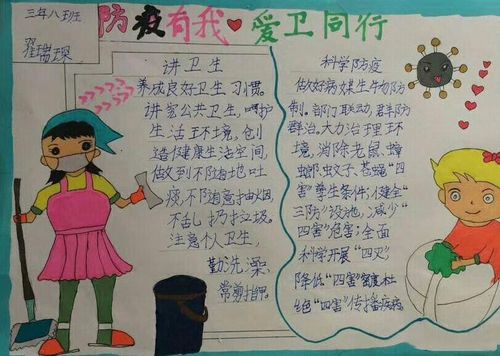 三年八班
翟瑞琛
防疫有我 爱卫同行
讲卫生
养成良好卫生习惯。
讲究公共卫生，呵护
生活环境，创
造健康生活空间，
做到不随地吐
痰，不随意抽烟，
不乱扔垃圾。
注意个人卫生，
勤洗澡，
常剪指甲。
科学防疫
做好病媒生物防
制。部门联动，群防
群治。大力治理环
境，消除老鼠、蟑
螂、蚊子、苍蝇“四
害”孳生条件；健全“
三防”设施，减少“
四害”危害；全面
科学开展“四灭”
降低“四害”密度杜
绝“四害”传播疾病